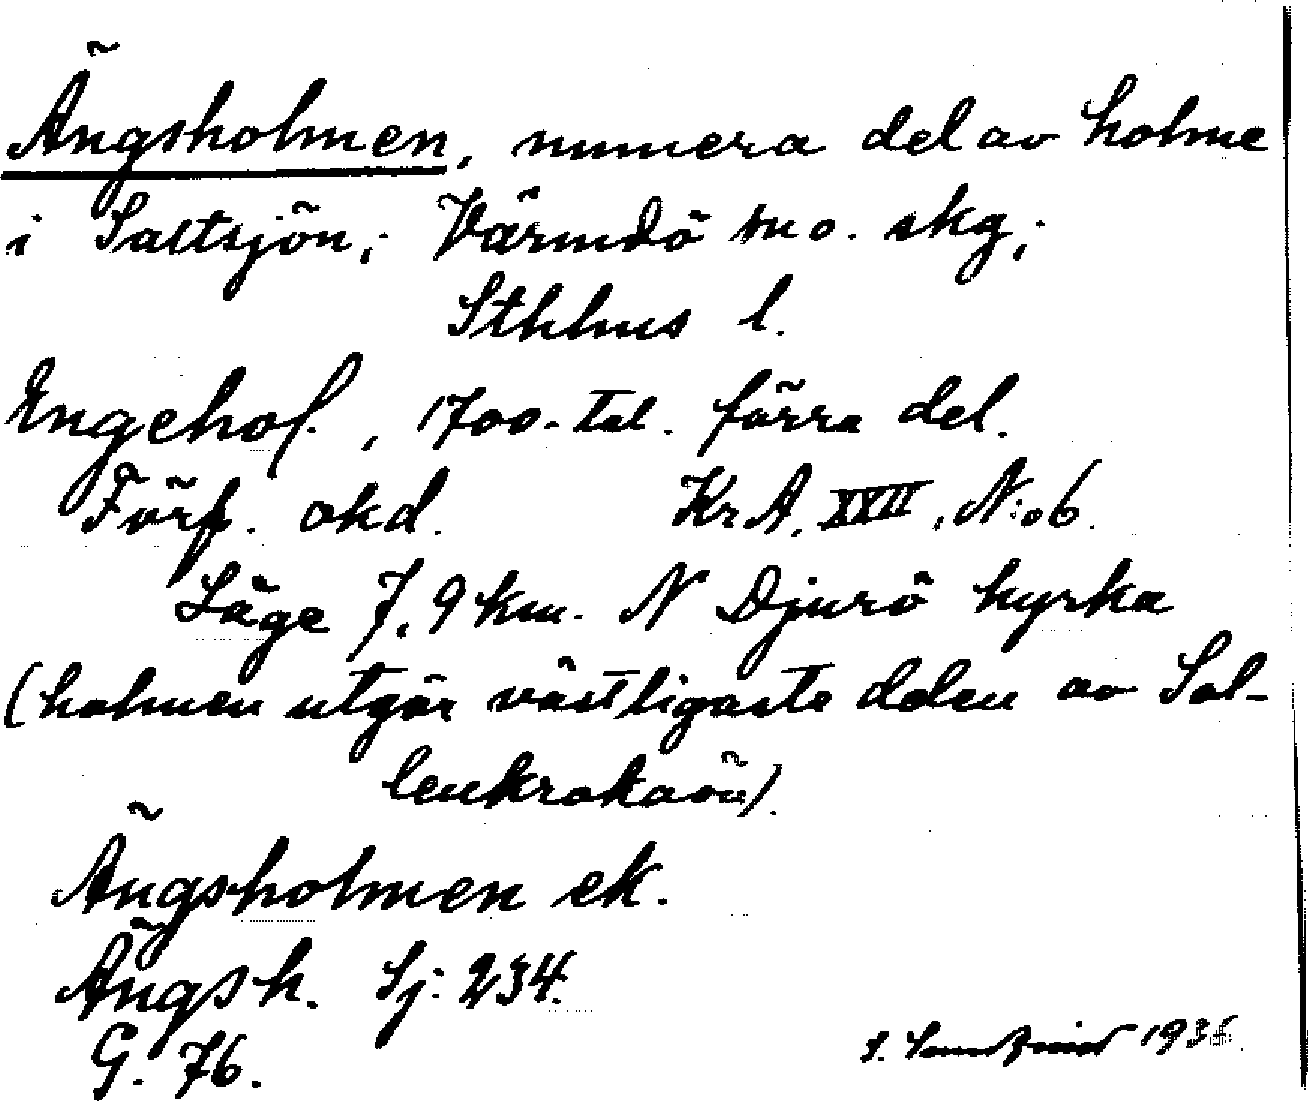 Ängsholmen, numera del av holme
i Saltsjön; Värmdö sn o. skg;
Sthlms l.
Engehof., 1700-tal. förra del.
Förf. okd. KrA, XXII, N:o 6.
Läge 7,9 km. N Djurö kyrka
(holmen utgör västligaste delen av Sol-
lenkrokaön).
Ängsholmen ek.
Ängsh. Sj: 234.
G. 76.